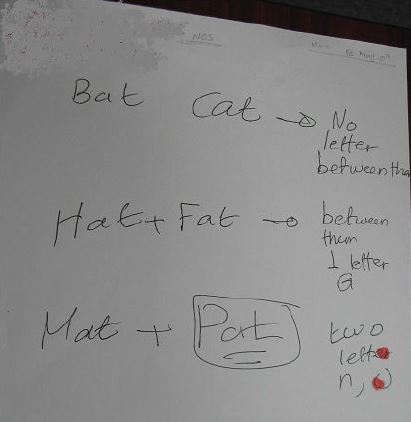 NOS
Mon 18 May 09
Bat Cat → No
letter
between them
Hat + Fat → between
them
1 letter
G
Mat + Pat two
letter
n, o